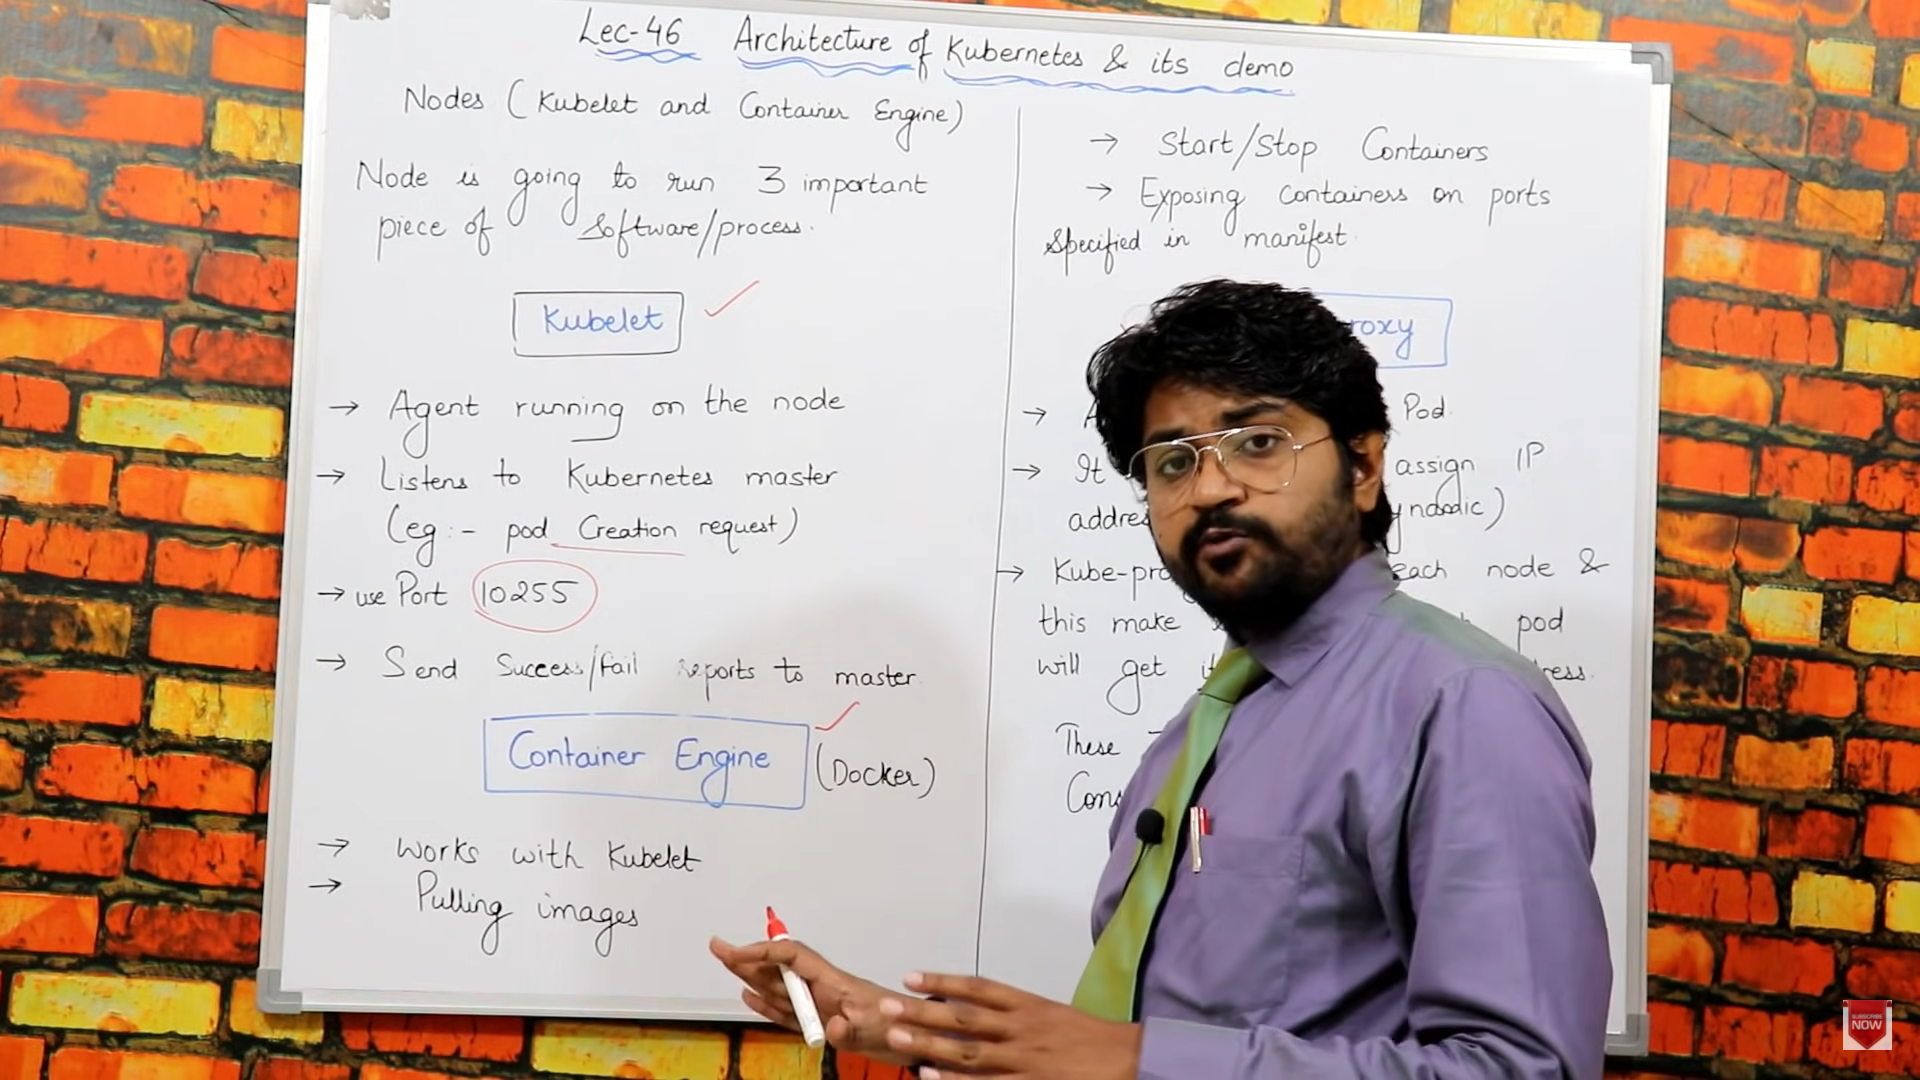 Lec-46 Architecture of Kubernetes & its demo
Nodes (Kubelet and Container Engine)
Node is going to run 3 important
piece of Software/process.
Kubelet
→ Agent running on the node
→ Listens to Kubernetes master
(eg:- pod Creation request)
→ use Port 10255
→ Send Success/Fail reports to master.
Container Engine (Docker)
→ works with Kubelet
→ Pulling images
→ Start/Stop Containers
→ Exposing containers on ports
Specified in manifest.
roxy
→ A Pod.
→ It assign IP
addre ynamic)
→ Kube-pro each node &
this make pod
will get i ress.
These
Cons
SUBSCRIBE
NOW